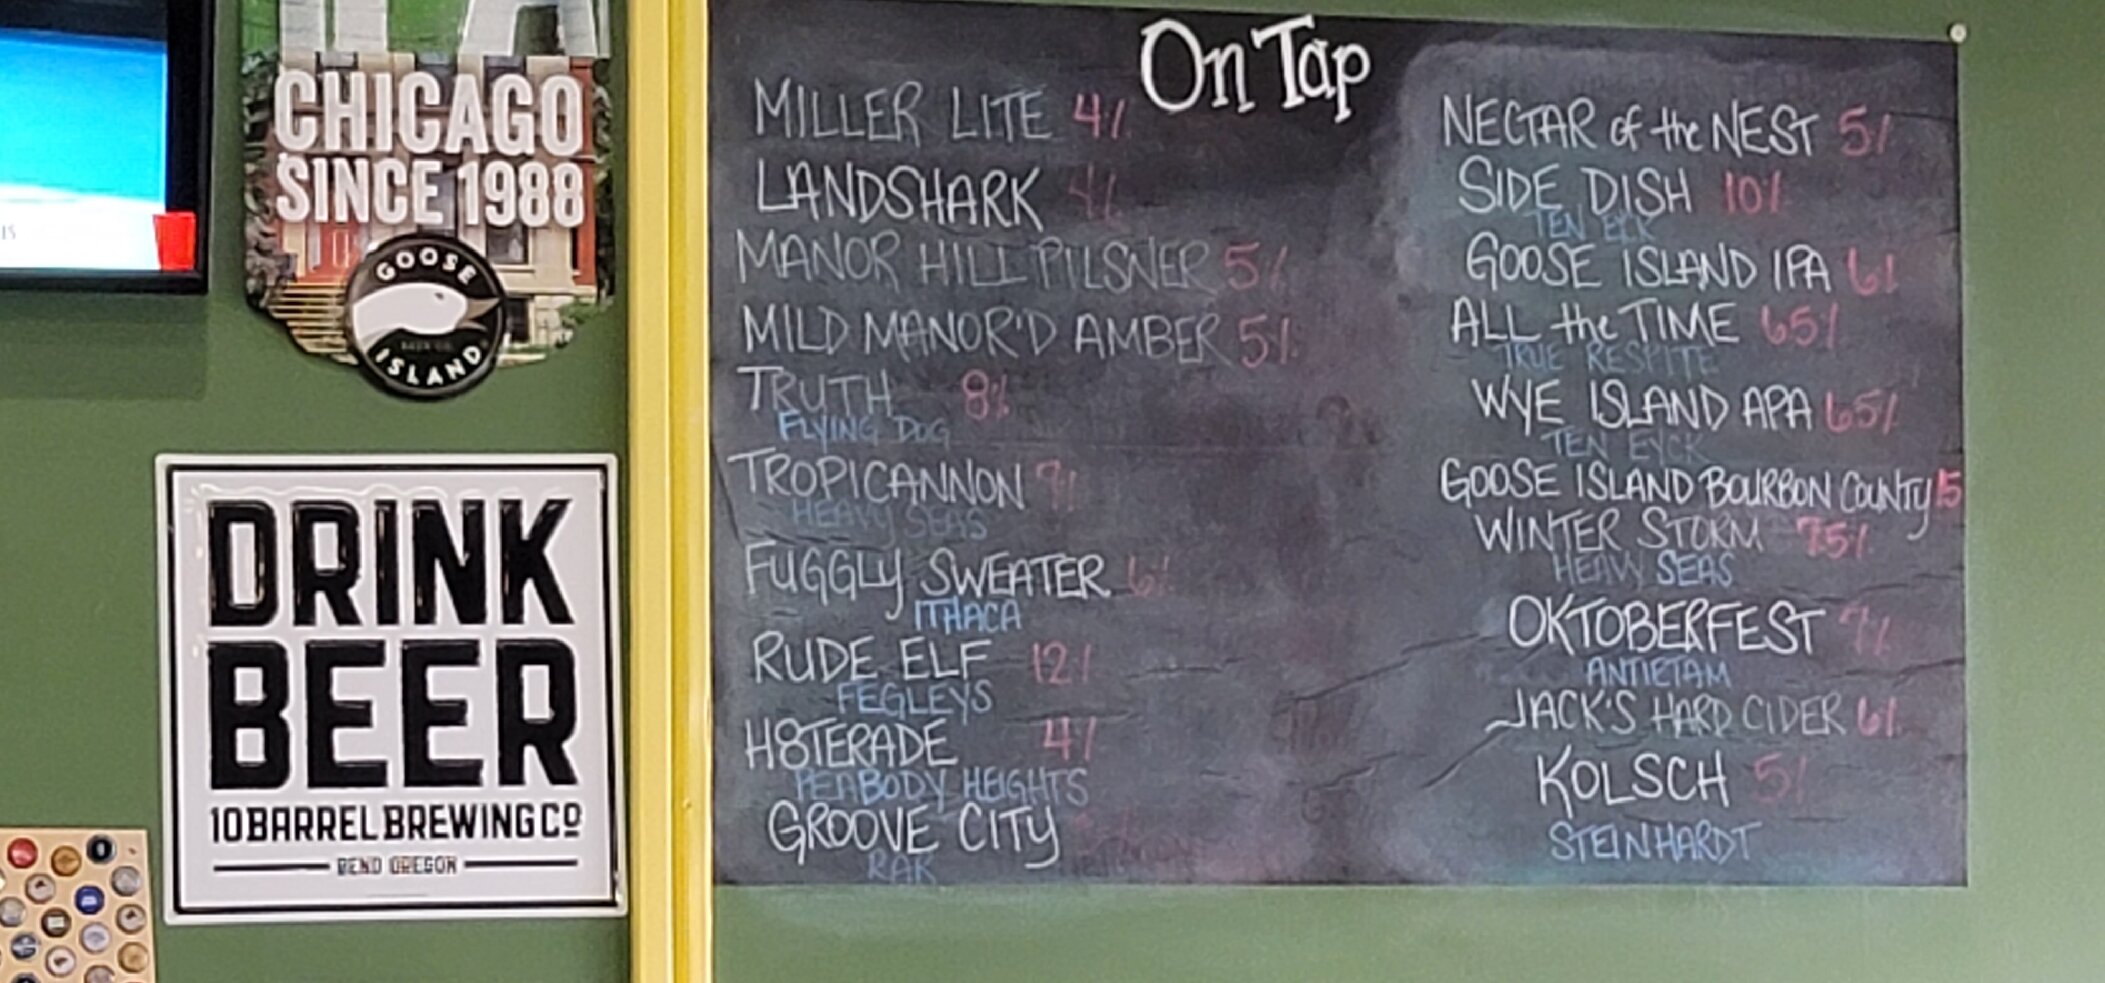 CHICAGO
SINCE 1988
GOOSE
ISLAND
DRINK
BEER
10 BARREL BREWING CO
BEND OREGON
On Tap
MILLER LITE 4%
LANDSHARK 4%
MANOR HILL PILSNER 5%
MILD MANOR'D AMBER 5%
TRUTH 8%
FLYING DOG
TROPICANNON
HEAVY SEAS
FUGGLY SWEATER 6%
ITHACA
RUDE ELF 12%
FEGLEYS
H8TERADE 4%
PEABODY HEIGHTS
GROOVE CITY
RAR
NECTAR of the NEST 5%
SIDE DISH 10%
TEN EYCK
GOOSE ISLAND IPA 6%
ALL the TIME 65%
TRUE RESPITE
WYE ISLAND APA 65%
TEN EYCK
GOOSE ISLAND BOURBON COUNTY 15
WINTER STORM 75%
HEAVY SEAS
OKTOBERFEST
ANTIETAM
JACK'S HARD CIDER 6%
KOLSCH 5%
STEINHARDT